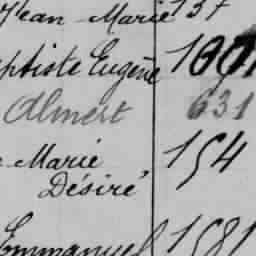 Jean Marie 137
ptiste Eugène 1001
Almert 631
Marie 154
Désiré
Emmanuel 1581